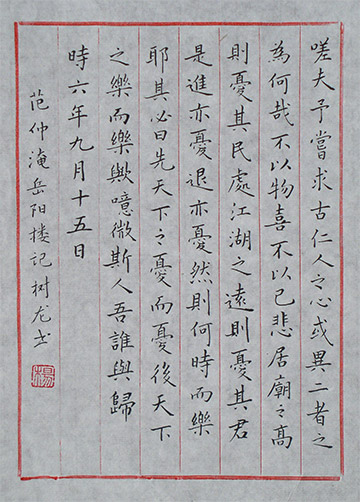 嗟夫予嘗求古仁人之心或異二者之
為何哉不以物喜不以己悲居廟之高
則憂其民處江湖之遠則憂其君
是進亦憂退亦憂然則何時而樂
耶其必曰先天下之憂而憂後天下
之樂而樂歟噫微斯人吾誰與歸
時六年九月十五日
范仲淹岳阳楼记树龙书